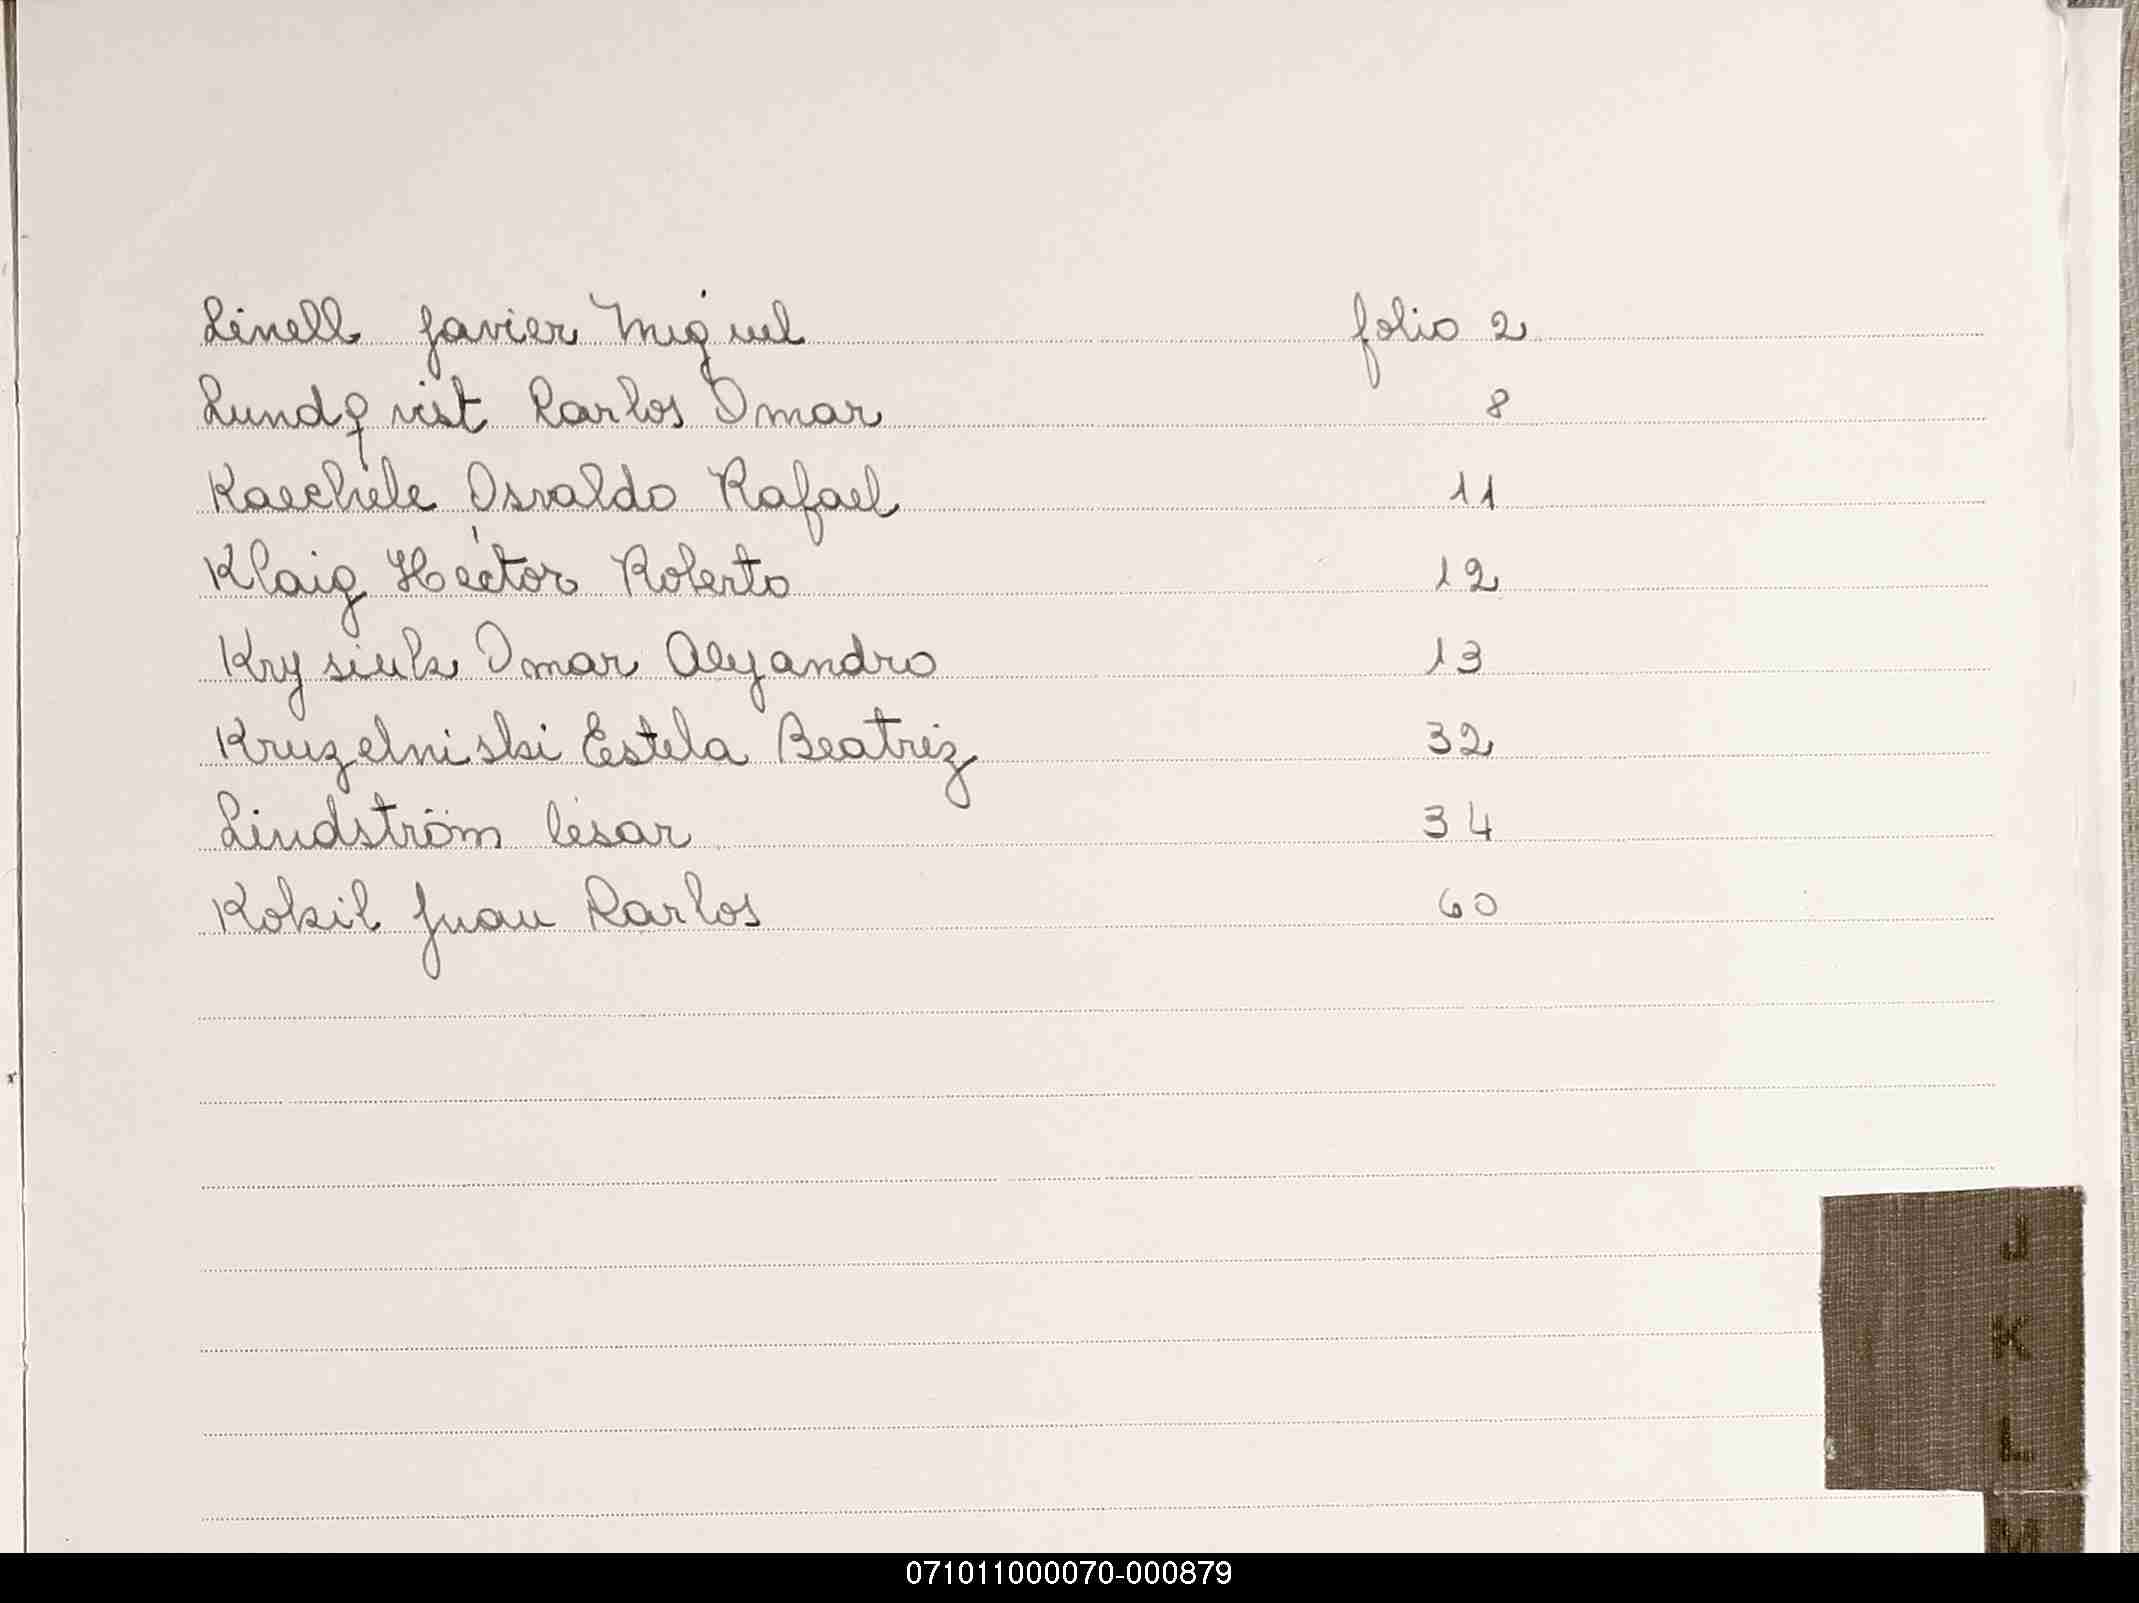 Linell Javier Miguel folio 2
Lundqvist Carlos Omar 8
Kaechele Osvaldo Rafael 11
Klaig Héctor Roberto 12
Krysiuk Omar Alejandro 13
Kruzelniski Estela Beatriz 32
Lindström César 34
Kokil Juan Carlos 60
J
K
L
M
071011000070-000879